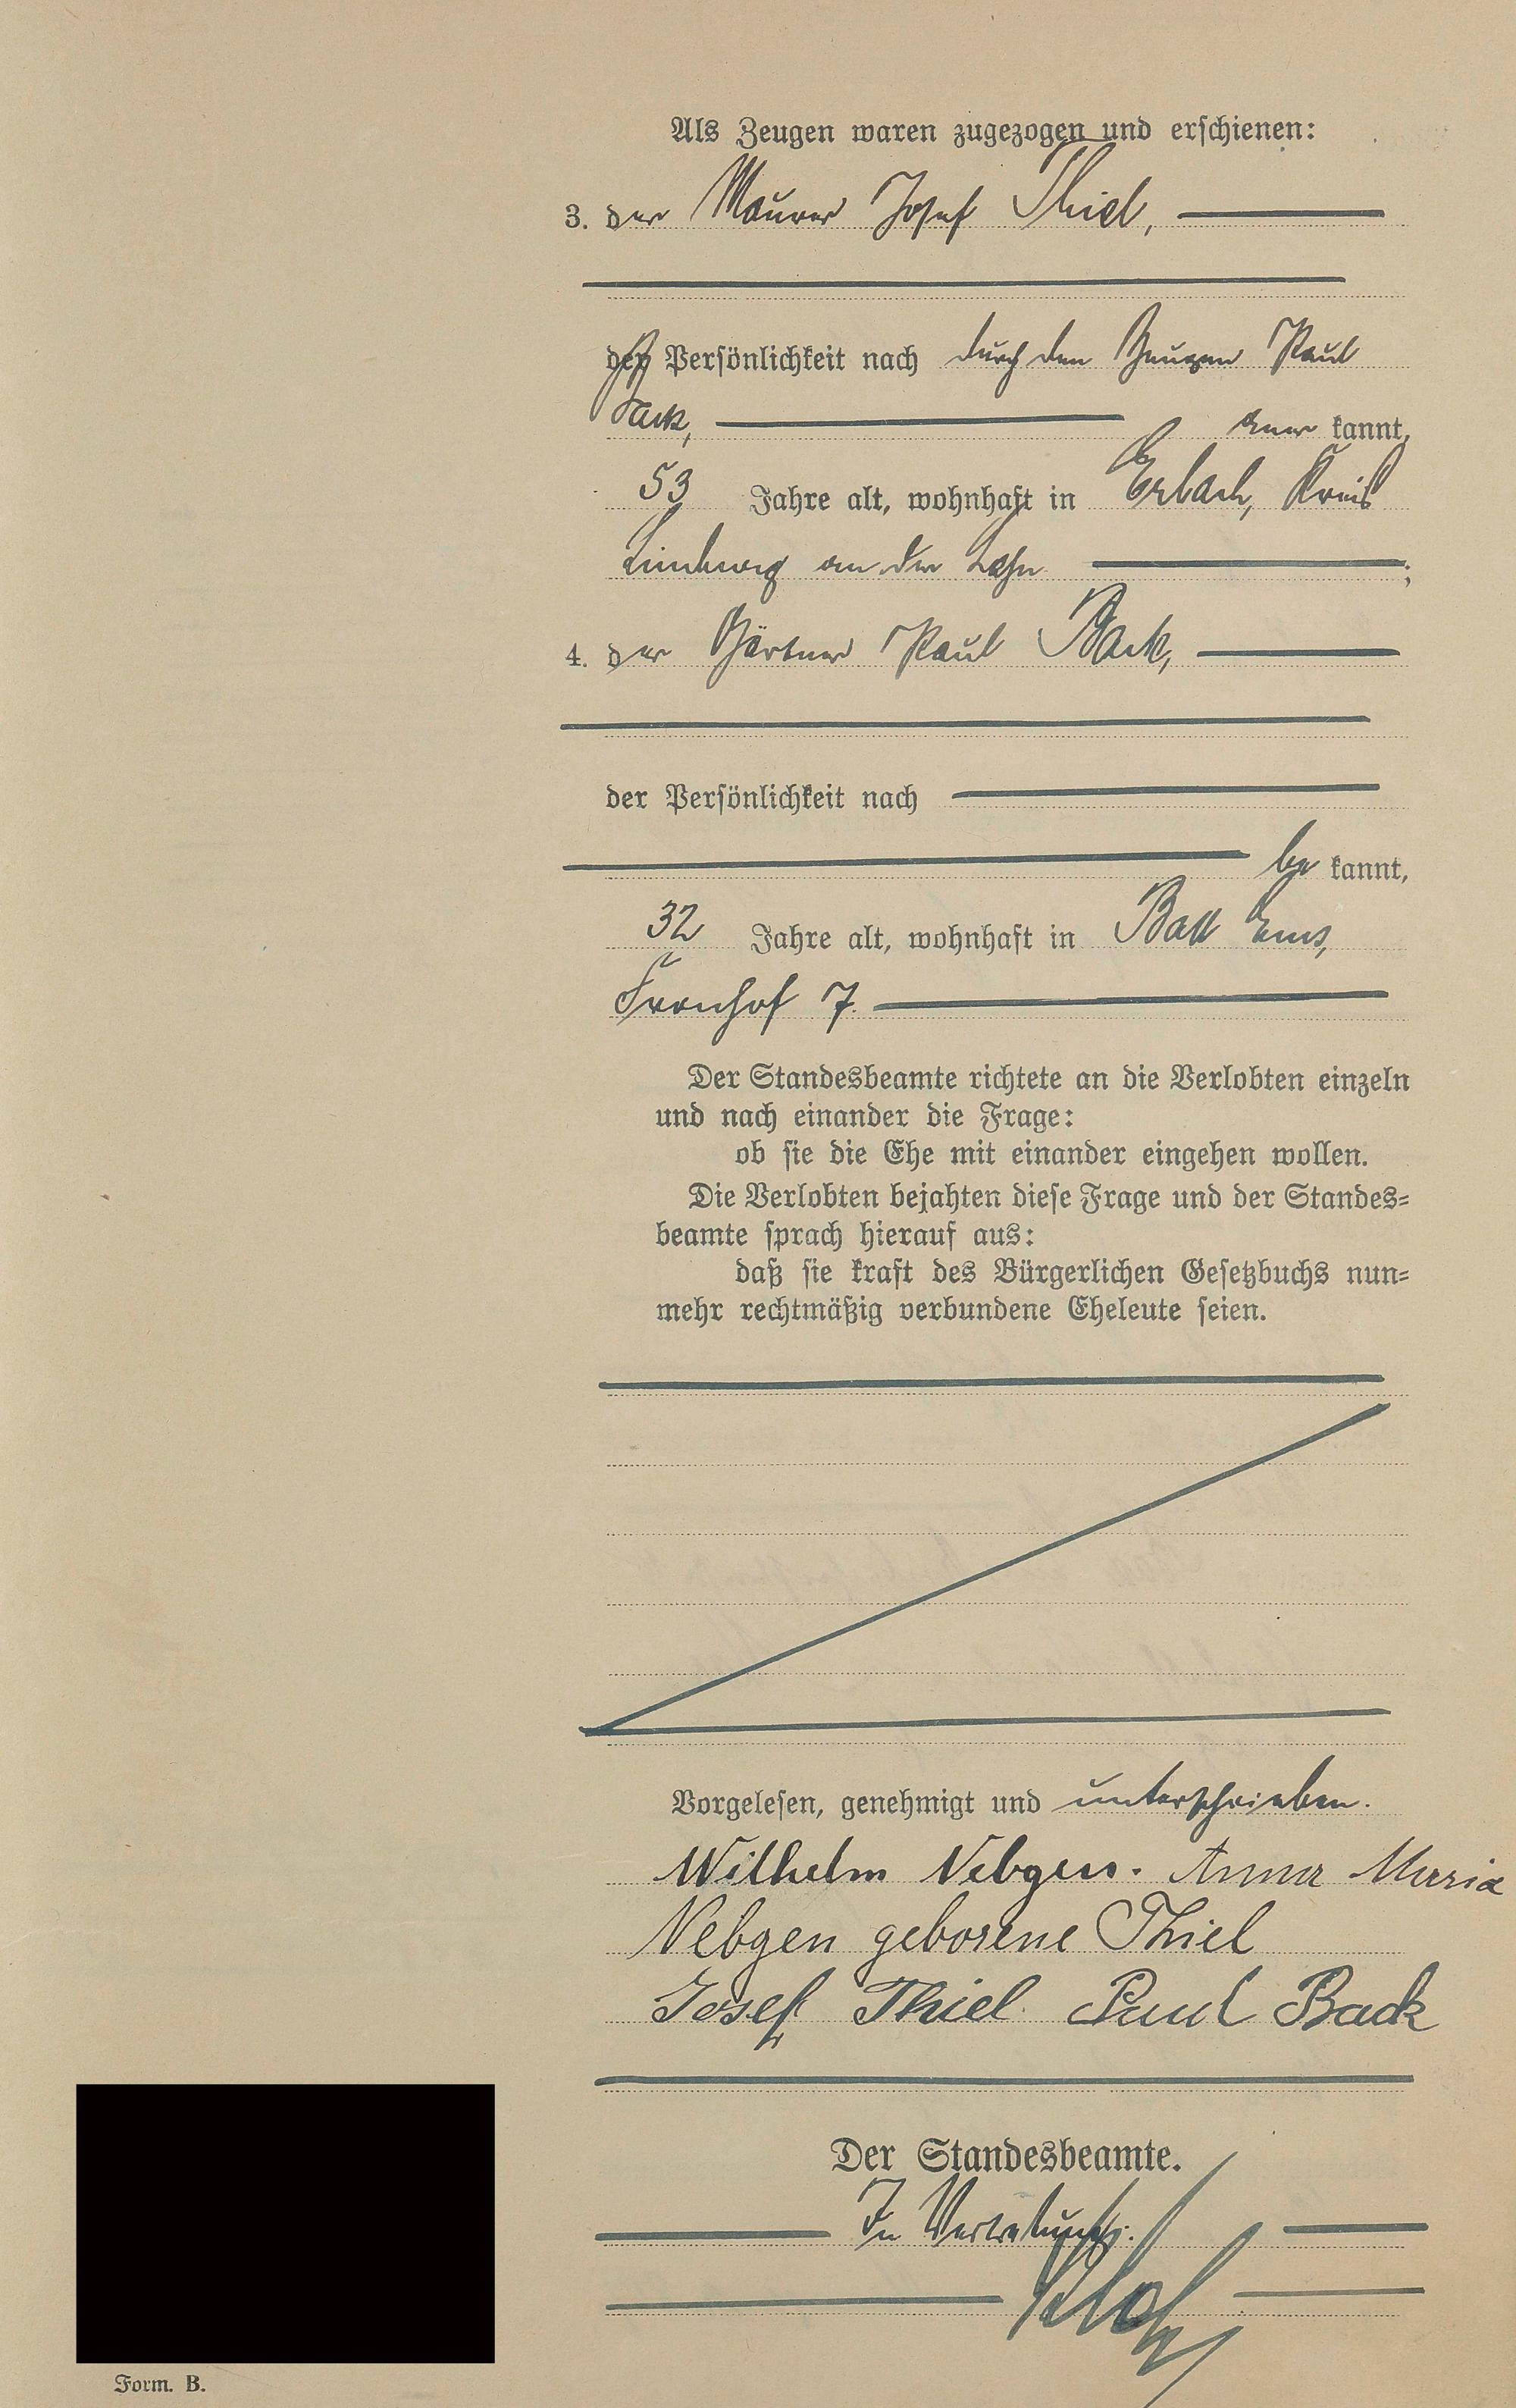 Als Zeugen waren zugezogen und erschienen:
3. der Maurer Josef Thiel,
der Persönlichkeit nach durch den Zeugen Paul
Back, aner kannt,
53 Jahre alt, wohnhaft in Erbach, Kreis
Limburg an der Lahn ;
4. der Gärtner Paul Back,
der Persönlichkeit nach
be kannt,
32 Jahre alt, wohnhaft in Bad Ems,
Fronhof 7.
Der Standesbeamte richtete an die Verlobten einzeln
und nach einander die Frage:
ob sie die Ehe mit einander eingehen wollen.
Die Verlobten bejahten diese Frage und der Standes=
beamte sprach hierauf aus:
daß sie kraft des Bürgerlichen Gesetzbuchs nun=
mehr rechtmäßig verbundene Eheleute seien.
Vorgelesen, genehmigt und unterschrieben.
Wilhelm Nebgen. Anna Maria
Nebgen geborene Thiel
Josef Thiel. Paul Back
Der Standesbeamte.
In Vertretung:
Form. B.